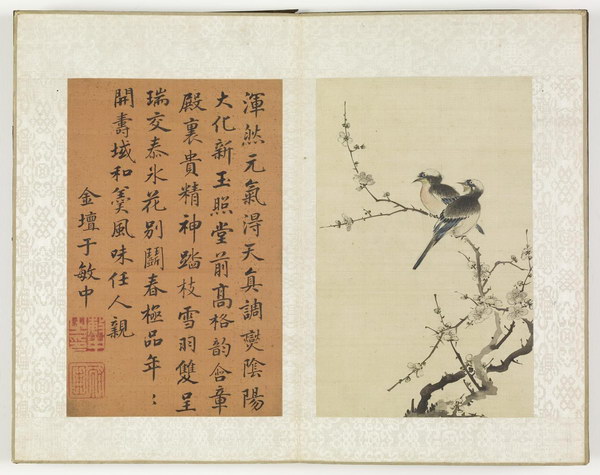 渾然元氣得天真調爕陰陽
大化新玉照堂前高格韵含章
殿裏貴精神踏枝雪羽雙呈
瑞交泰氷花別鬭春極品年〻
開壽域和羹風味任人親
金壇于敏中